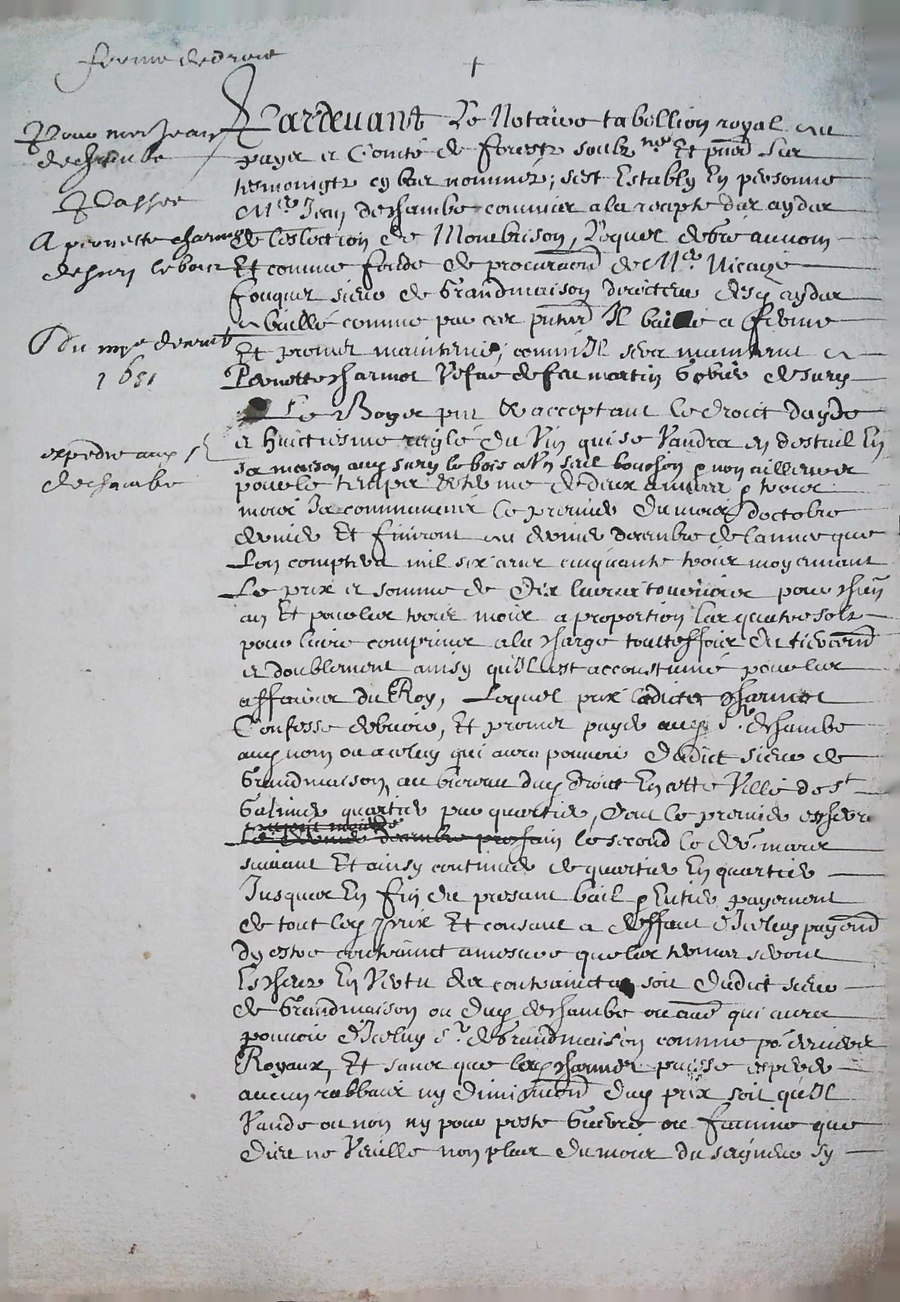 ferme de droit
+
Pour me Jean
dechambe
Passée
A pernette charmot
de sury le bois
Du 1651
expedie aux s
dechambe
Pardevant Le Notaire tabellion royal au
payis et Comté de forestz soubz.né Et pñtz Les
tesmoingtz cy bas nommés, s'est Estably En personne
Mre Jean dechambe commis a la recepte des aydes
de L'eslection de Montbrison, Lequel de gré au nom
Et comme fondé de procuraõn de Mre Nicayse
fouquer sieur de Grandmaison directeur desd aydes
a baillé comme par ces pñtes Il baille a ferme
Et promet maintenir, comm'Il sera maintenu a
Pernette charmot Vefve de feu martin de sury
Le Boys pnt Et acceptant le droict dayde
et huictiesme reglé du Vin qui se Vandra en destail En
sa maison aud sury le bois et non ailleurs
pour le temps et terme de deux années & trois
mois Ja commancés Le premier du mois d'octobre
dernier Et finiront au dernier decembre de l'annee que
L'on comptera mil six cens cinquante trois moyennant
Le prix et somme de dix livres tournois pour chün
an Et pour les trois mois a proportion Les quatre solz
pour livre comprins a la charge touttesfois du tiercemt
et doublement ainsy qu'Il est accoustumé pour les
affaires du Roy, Lequel prix ladicte charmot
Confesse debvoir, Et promet payer aud sr dechambe
aud nom ou autre qui aura pouvoir dudict sieur de
Grandmaison, au bureau dud droict En cette Ville de St
Galmier quartier par quartier, dont le premier eschera
le dernier decembre prochain le second le der. mars
suivant Et ainsy continuer de quartier En quartier
Jusques En fin du presant bail & Entier payement
de tout led prix Et consent a deffaut d'Iceluy payemt
d'y estre contrainct a mesure que les termes seront
Escheus En Vertu des contrainctes soit dudict sieur
de Grandmaison ou dud dechambe ou autre qui aura
pouvoir d'Iceluy sr de Grandmaison comme po. deniers
Royaux, Et sans que lad charmot puisse esperer
aucun rabbais ny diminuõn dud prix soit qu'Il
Vande ou non ny pour peste Guerre ou famine que
Dieu ne Veuille non plus du mois du seigneur sy